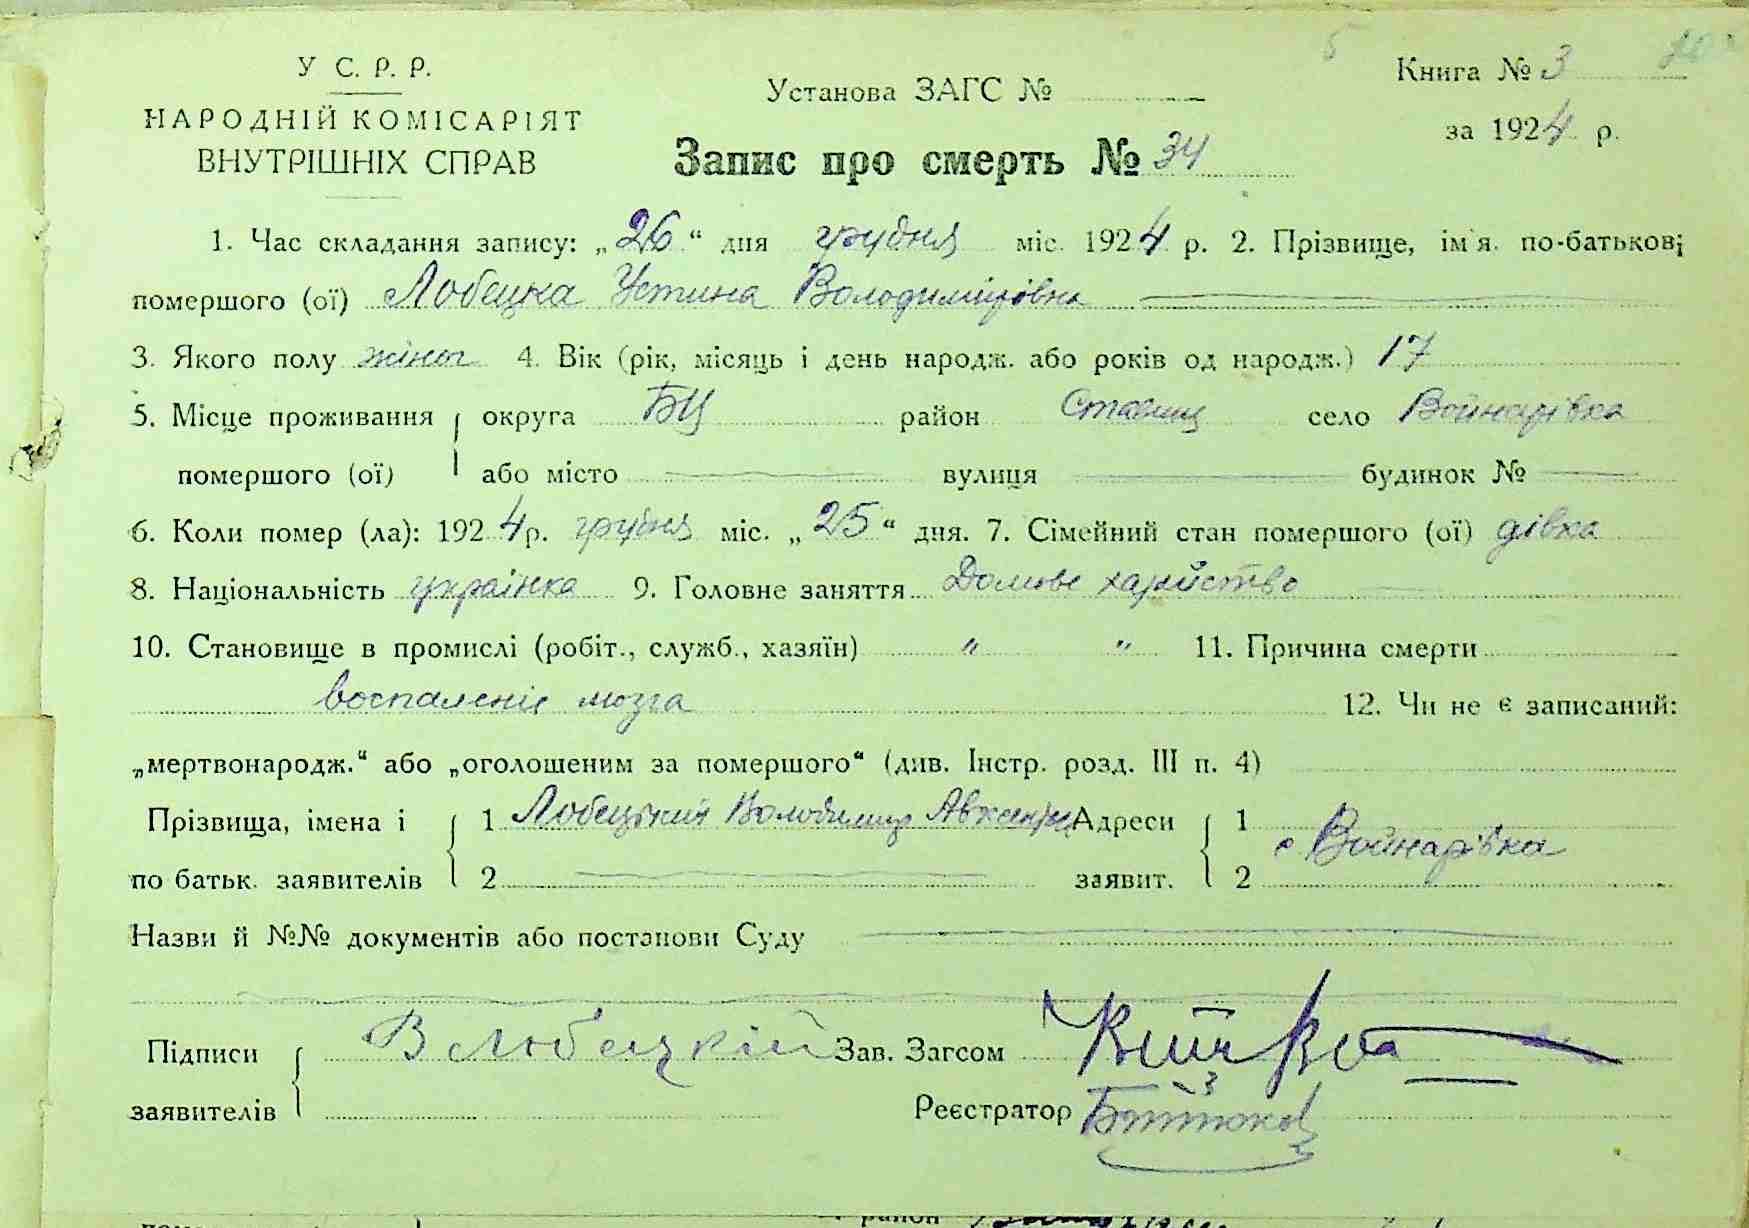 5
У С. Р. Р.
НАРОДНІЙ КОМІСАРІЯТ
ВНУТРІШНІХ СПРАВ
Установа ЗАГС №
Запис про смерть № 34
Книга № 3
за 1924 р.
1. Час складання запису: „26“ дня грудня міс. 1924 р. 2. Прізвище, ім'я. по-батькові
помершого (ої) Лобецка Устина Володиміровна
3. Якого полу жіноч 4. Вік (рік, місяць і день народж. або років од народж.) 17
5. Місце проживання округа БЦ район Ставищ село Войнарівка
помершого (ої) або місто вулиця будинок №
6. Коли помер (ла): 1924 р. грудня міс. „25“ дня. 7. Сімейний стан помершого (ої) дівка
8. Національність українка 9. Головне заняття Домове хазяйство
10. Становище в промислі (робіт., служб., хазяїн) " " 11. Причина смерти
воспаленіє мозга 12. Чи не є записаний:
„мертвонародж.“ або „оголошеним за помершого“ (див. Інстр. розд. III п. 4)
Прізвища, імена і 1 Лобецкий Володимир Адреси 1
с Войнарівка
по батьк. заявителів 2 заявит. 2
Назви й №№ документів або постанови Суду
Підписи В Любецкій Зав. Загсом
заявителів Реєстратор
район